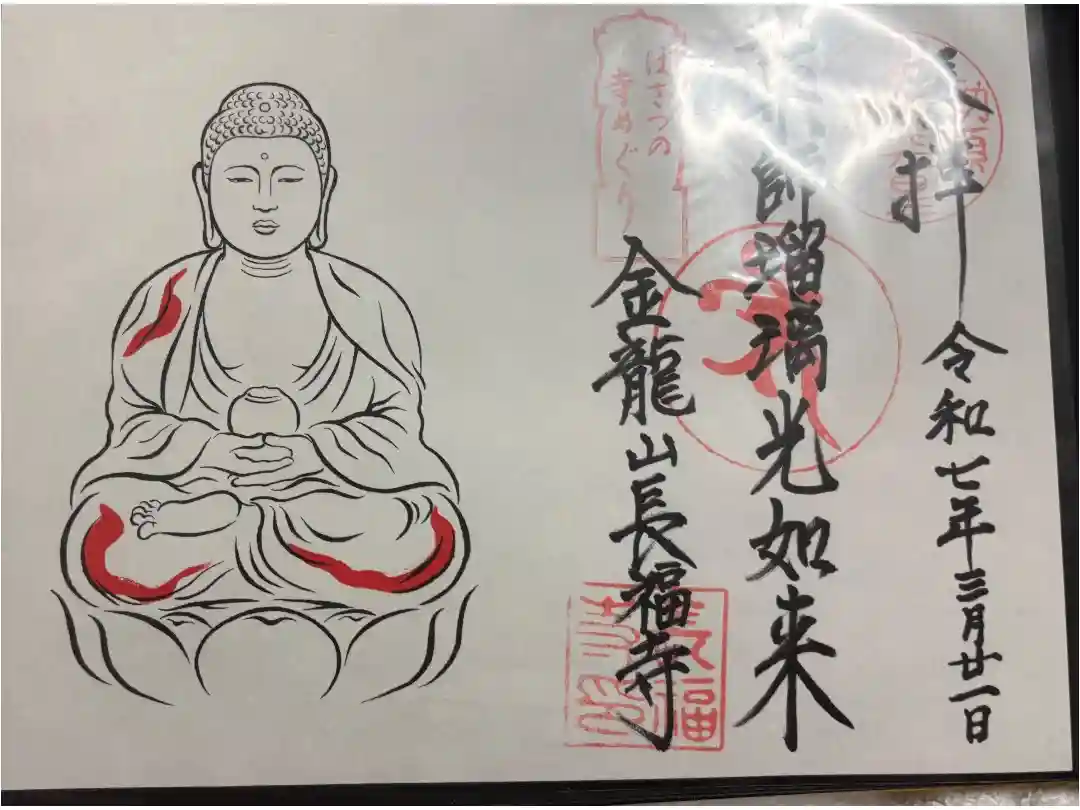 奉拝
令和七年三月廿一日
師瑠璃光如来
ぼさつの
寺めぐり
金龍山長福寺